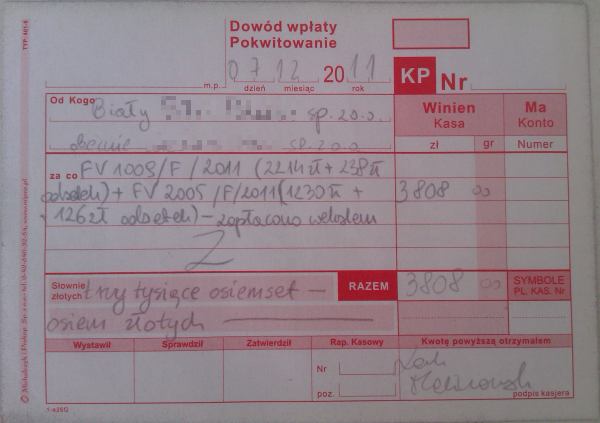 Dowód wpłaty
Pokwitowanie
m.p.
07 12 2011
dzień miesiąc rok
KP Nr
Od Kogo Biały sp. z o.o.
obecnie sp. z o.o.
Winien Kasa
Ma Konto
zł gr Numer
za co FV 1009/F/2011 (2214 zł + 238 zł
odsetek) + FV 2005/F/2011 (1230 zł + 3808 00
126 zł odsetek) – zapłacono wekslem
Słownie złotych trzy tysiące osiemset –
osiem złotych
RAZEM 3808 00
SYMBOLE PL. KAS. Nr
Wystawił Sprawdził Zatwierdził Rap. Kasowy Kwotę powyższą otrzymałem
Nr
poz.
podpis kasjera